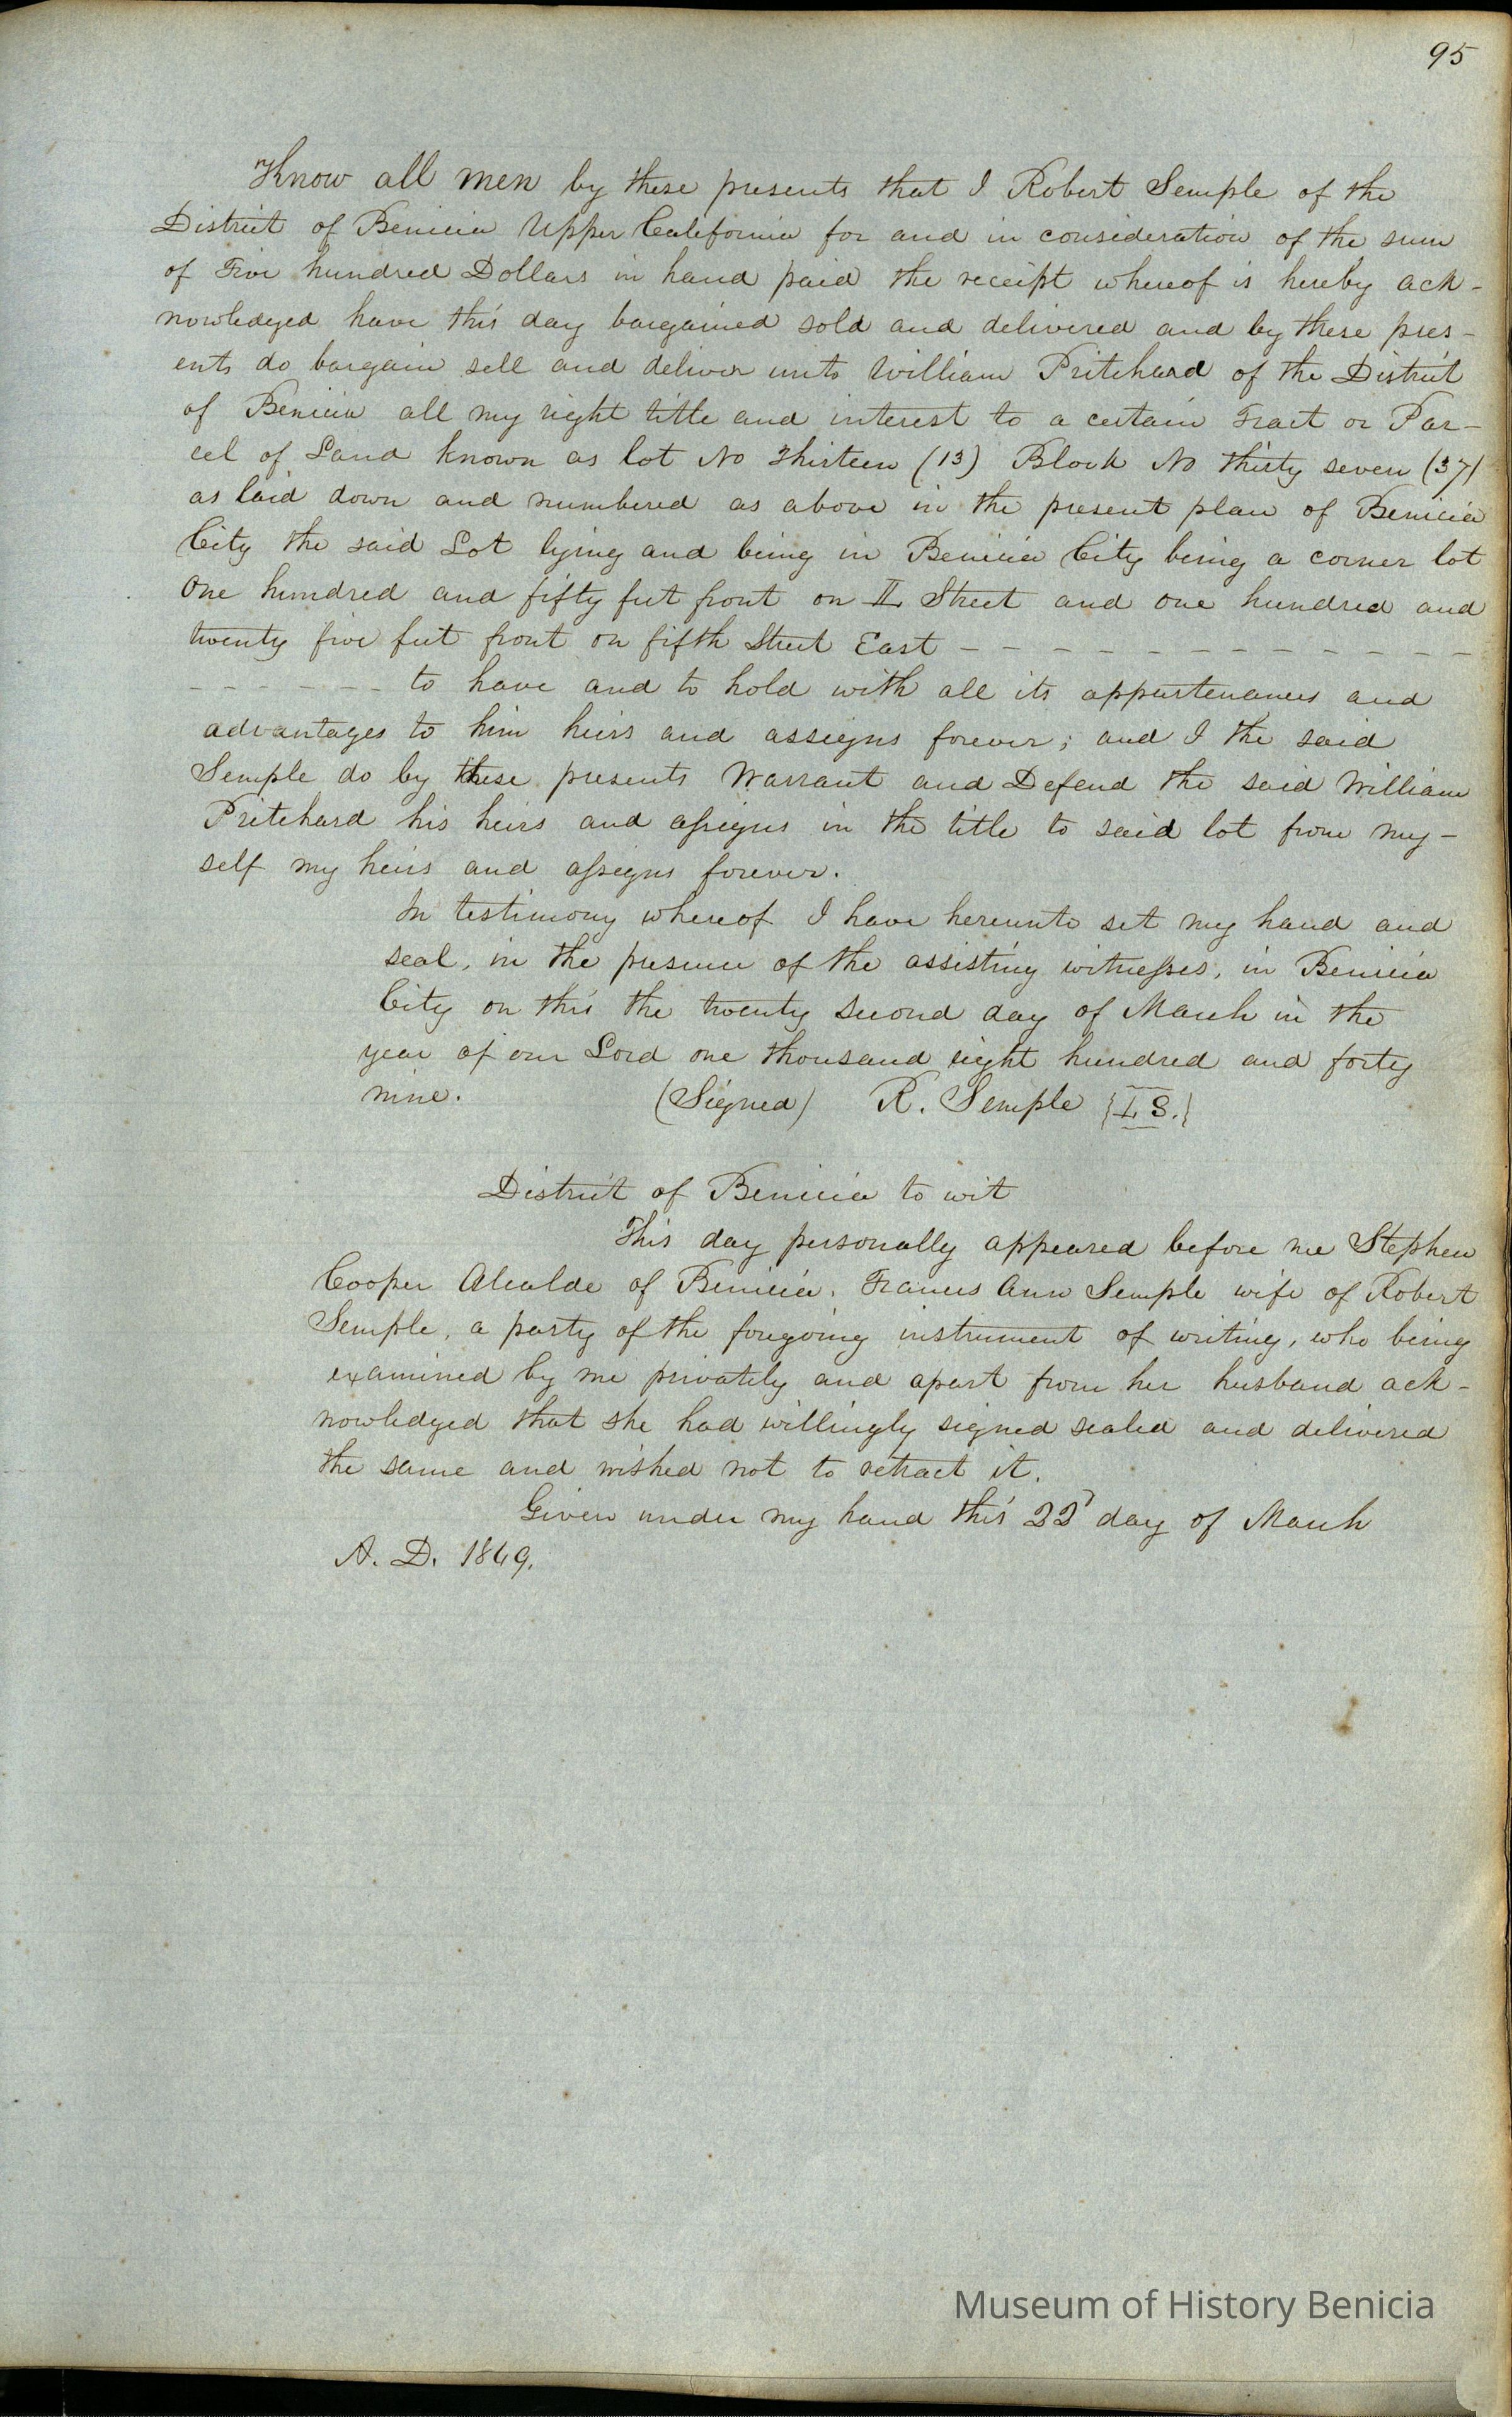 95
Know all men by these presents that I Robert Semple of the
District of Benicia Upper California for and in consideration of the sum
of Five hundred Dollars in hand paid the receipt whereof is hereby ack-
nowledged have this day bargained sold and delivered and by these pres-
ents do bargain sell and deliver unto William Pritchard of the District
of Benicia all my right title and interest to a certain Tract or Par-
cel of Land known as lot No Thirteen (13) Block No thirty seven (37)
as laid down and numbered as above in the present plan of Benicia
City the said Lot lying and being in Benicia City being a corner lot
One hundred and fifty feet front on Street and one hundred and
twenty five feet front on fifth Street East - - - - - - - - - - - - -
- - - - - - - to have and to hold with all its appurtenances and
advantages to him heirs and assigns forever; and I the said
Semple do by these presents Warrant and Defend the said William
Pritchard his heirs and assigns in the title to said lot from my-
self my heirs and assigns forever.
In testimony whereof I have hereunto set my hand and
seal, in the presence of the assisting witnesses, in Benicia
City on this the twenty second day of March in the
year of our Lord one thousand eight hundred and forty
nine. (Signed) R. Semple {L S.}
District of Benicia to wit
This day personally appeared before me Stephen
Cooper Alcalde of Benicia. Frances Ann Semple wife of Robert
Semple, a party of the foregoing instrument of writing, who being
examined by me privately and apart from her husband ack-
nowledged that she had willingly signed sealed and delivered
the same and wished not to retract it.
Given under my hand this 22d day of March
A. D. 1849.
Museum of History Benicia